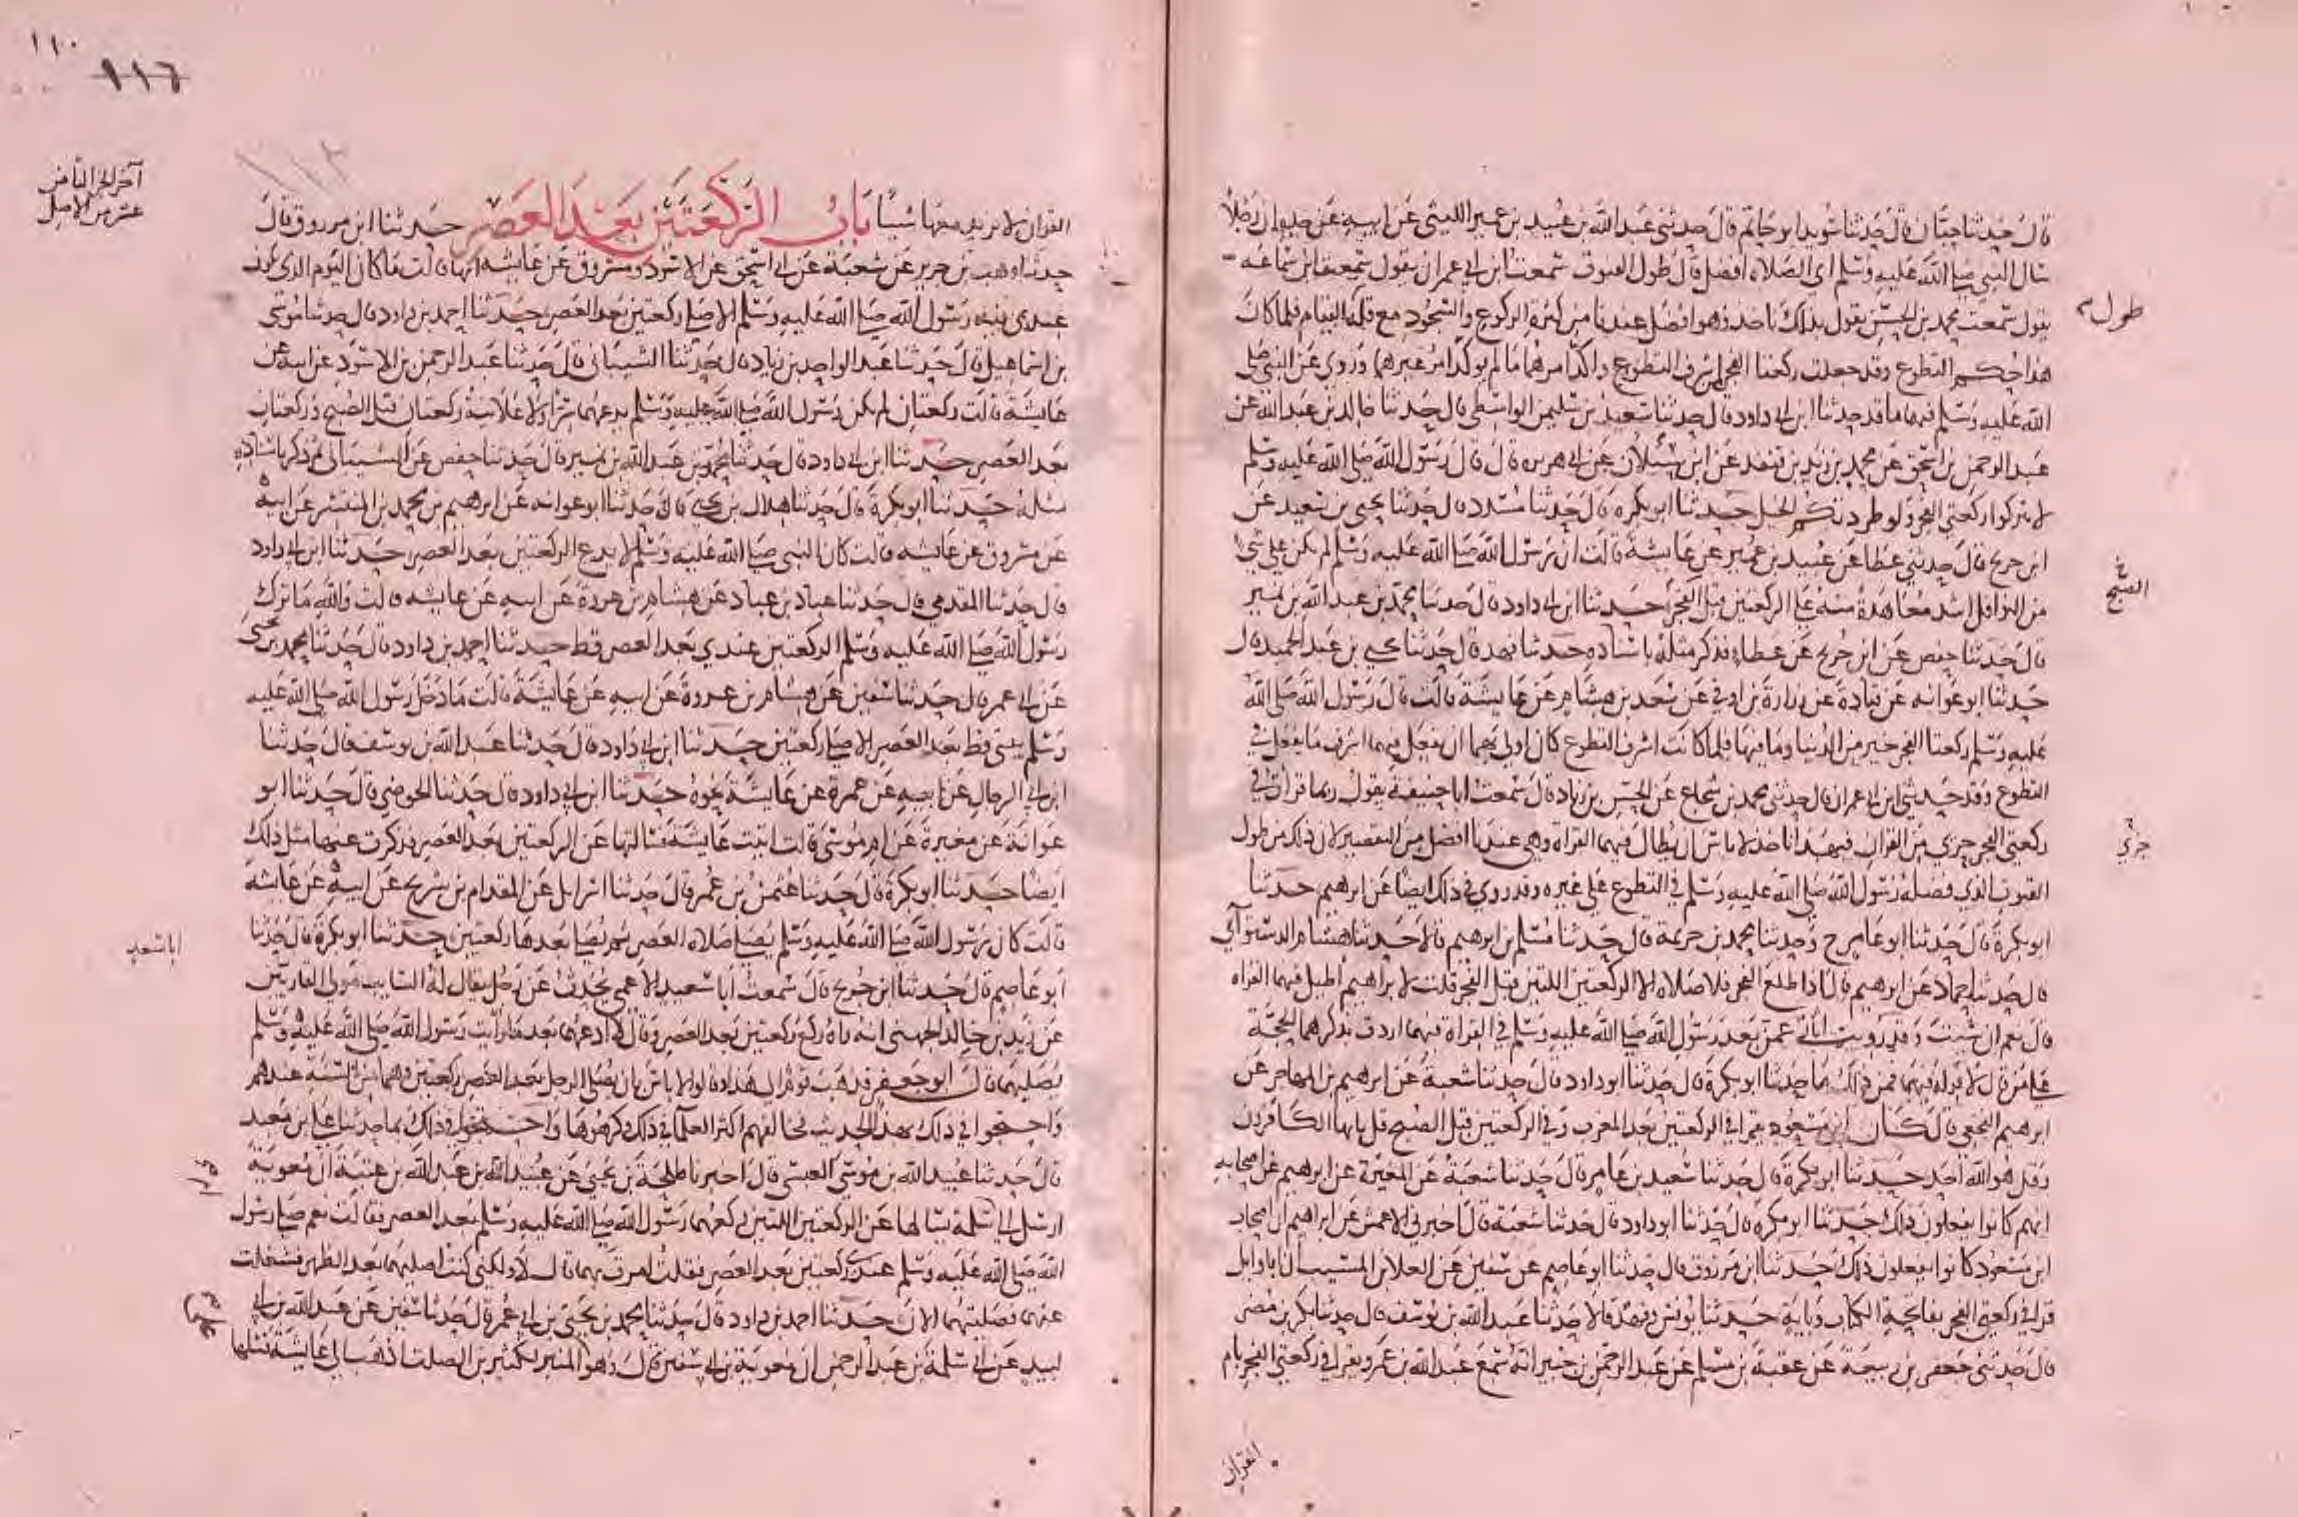 قال حدثنا حبان قال حدثنا سويد ابو حاتم قال حدثني عبد الله بن عبيد بن عمير الليثي عن ابيه عن جده ان رجلا
سال النبي صلى الله عليه وسلم اي الصلاه افضل قال طول القنوت سمعت ابن ابي عمران يقول سمعت ابن سماعه
يقول سمعت محمد بن الحسن يقول بذلك ناخذ وهو افضل عندنا من كثرة الركوع والسجود مع قلة القيام فلما كان
هذا حكم التطوع وقد جعلت ركعتا الفجر اشرف التطوع واكد امرهما ما لم يوكد امر غيرهما وروي عن النبي صلى
الله عليه وسلم فيهما ما قد حدثنا ابن ابي داود قال حدثنا سعيد بن سليمن الواسطي قال حدثنا خالد بن عبد الله عن
عبد الرحمن بن اسحق عن محمد بن زيد بن قنفذ عن ابن سيلان عن ابي هريره قال قال رسول الله صلى الله عليه وسلم
لا تتركوا ركعتي الفجر ولو طردتكم الخيل حدثنا ابو بكره قال حدثنا مسدد قال حدثنا يحيى بن سعيد عن
ابن جريج قال حدثني عطا عن عبيد بن عمير عن عايشة قالت ان رسول الله صلى الله عليه وسلم لم يكن على شي
من النوافل اشد معاهدة منه على الركعتين قبل الفجر حدثنا ابن ابي داود قال حدثنا محمد بن عبد الله بن نمير
قال حدثنا حفص عن ابن جريج عن عطاء فذكر مثله باسناده حدثنا فهد قال حدثنا يحيى بن عبد الحميد قال
حدثنا ابو عوانه عن قتادة عن زرارة بن اوفى عن سعد بن هشام عن عايشة قالت قال رسول الله صلى الله
عليه وسلم ركعتا الفجر خير من الدنيا وما فيها فلما كانت اشرف التطوع كان اولى بهما ان يفعل فيهما اشرف ما يفعل في
التطوع وقد حدثني ابن ابي عمران قال حدثني محمد بن شجاع عن الحسن بن زياد قال سمعت ابا حنيفة يقول ربما قرات في
ركعتي الفجر جزي من القران فبهذا ناخذ لا باس ان يطال فيهما القراة وهي عندنا افضل من التقصير لان ذلك من طول
القنوت الذي فضله رسول الله صلى الله عليه وسلم في التطوع على غيره وقد روي في ذلك ايضا عن ابرهيم حدثنا
ابو بكرة قال حدثنا ابو عامر ح وحدثنا محمد بن خزيمة قال حدثنا مسلم بن ابرهيم قالا حدثنا هشام الدستوآئي
قال حدثنا حماد عن ابرهيم قال اذا طلع الفجر فلا صلاه الا الركعتين اللتين قبل الفجر قلت لابراهيم اطيل فيهما القراه
قال نعم ان شيت وقد رويت اثار عمن بعد رسول الله صلى الله عليه وسلم في القراة فيهما اردت بذكرهما الحجة
على من قال لا قراه فيهما فمن ذلك ما حدثنا ابو بكرة قال حدثنا ابو داود قال حدثنا شعبة عن ابرهيم بن المهاجر عن
ابرهيم النخعي قال كان ابن مسعود يقرا في الركعتين بعد المغرب وفي الركعتين قبل الصبح قل يايها الكافرون
وقل هو الله احد حدثنا ابو بكرة قال حدثنا سعيد بن عامر قال حدثنا شعبة عن المغيرة عن ابرهيم عن اصحابه
انهم كانوا يفعلون ذلك حدثنا ابو بكرة قال حدثنا ابو داود قال حدثنا شعبة قال اخبرني الاعمش عن ابراهيم ان اصحاب
ابن مسعود كانوا يفعلون ذلك حدثنا ابن مرزوق قال حدثنا ابو عاصم عن سفين عن العلا بن المسيب ان ابا وايل
قرا في ركعتي الفجر بفاتحة الكتاب وباية حدثنا يونس وفهد قالا حدثنا عبد الله بن يوسف قال حدثنا بكر بن مضر
قال حدثني جعفر بن ربيعة عن عقبة بن مسلم عن عبد الرحمن بن جبير انه سمع عبد الله بن عمرو يقرا في ركعتي الفجر بام
القران
طول
الصبح
جزئي
١١٠
١١٦
١١٢
آخر الجز الثامن
عشر من الاصل
القران لا يزيد معها شيئا باب الركعتين بعد العصر حدثنا ابن مرزوق قال
حدثنا وهب بن جرير عن شعبة عن ابي اسحق عن الاسود ومسروق عن عايشه انها قالت ما كان اليوم الذي يكون
عندي فيه رسول الله صلى الله عليه وسلم الا صلى ركعتين بعد العصر حدثنا احمد بن داود قال حدثنا موسى
بن اسماعيل قال حدثنا عبد الواحد بن زياد قال حدثنا الشيباني قال حدثنا عبد الرحمن بن الاسود عن ابيه عن
عايشة قالت ركعتان لم يكن رسول الله صلى الله عليه وسلم يدعهما سرا ولا علانية ركعتان قبل الصبح وركعتان
بعد العصر حدثنا ابن ابي داود قال حدثنا محمد بن عبد الله بن نمير قال حدثنا حفص عن الشيباني ثم ذكر باسناده
مثله حدثنا ابو بكرة قال حدثنا هلال بن يحيى قال حدثنا ابو عوانه عن ابرهيم بن محمد بن المنتشر عن ابيه
عن مسروق عن عايشه قالت كان النبي صلى الله عليه وسلم لا يدع الركعتين بعد العصر حدثنا ابن ابي داود
قال حدثنا المقدمي قال حدثنا عباد بن عباد عن هشام بن عروة عن ابيه عن عايشه قالت والله ما ترك
رسول الله صلى الله عليه وسلم الركعتين عندي بعد العصر قط حدثنا احمد بن داود قال حدثنا محمد بن يحيى
عن ابي عمر قال حدثنا سفين عن هشام بن عروة عن ابيه عن عايشة قالت ما دخل رسول الله صلى الله عليه
وسلم بيتي قط بعد العصر الا صلى ركعتين حدثنا ابن ابي داود قال حدثنا عبد الله بن يوسف قال حدثنا
ابن ابي الرجال عن ابيه عن عمرة عن عايشة نحوه حدثنا ابن ابي داود قال حدثنا الحوضي قال حدثنا ابو
عوانة عن مغيرة عن ام موسى قالت اتيت عايشة فسالتها عن الركعتين بعد العصر فذكرت عنها مثل ذلك
ايضا حدثنا ابو بكرة قال حدثنا عثمن بن عمر قال حدثنا اسرايل عن المقدام بن شريح عن ابيه عن عايشة
قالت كان رسول الله صلى الله عليه وسلم يصلي صلاه العصر ثم يصلي بعدها ركعتين حدثنا ابو بكرة قال حدثنا
ابو عاصم قال حدثنا ابن جريج قال سمعت ابا سعيد الاعمى يحدث عن رجل يقال له السايب مولى القاريين
عن زيد بن خالد الجهني انه راه ركع ركعتين بعد العصر وقال لا ادعهما بعد ما رايت رسول الله صلى الله عليه وسلم
يصليهما قال ابو جعفر فذهب قوم الى هذا وقالوا لا باس بان يصلي الرجل بعد العصر ركعتين وهما من السنة عندهم
واحتجوا في ذلك بهذا الحديث فخالفهم اكثر العلما في ذلك وكرهوها واحتجوا في ذلك بما حدثنا علي بن معبد
قال حدثنا عبيد الله بن موسى العبسي قال اخبرنا طلحة بن يحيى عن عبيد الله بن عبد الله بن عتبة ان معوية
ارسل الى ام سلمة يسالها عن الركعتين اللتين ركعهما رسول الله صلى الله عليه وسلم بعد العصر فقالت نعم صلى رسول
الله صلى الله عليه وسلم عندي ركعتين بعد العصر فقلت امرت بهما قال لا ولكني كنت اصليهما بعد الظهر فشغلت
عنهما فصليتهما الان حدثنا احمد بن داود قال حدثنا محمد بن يحيى بن ابي عمر قال حدثنا سفين عن عبد الله بن ابي
لبيد عن ابي سلمة بن عبد الرحمن ان معوية بن ابي سفين قال وهو على المنبر لكثير بن الصلت اذهب الى عايشة فسلها
ابا سعيد